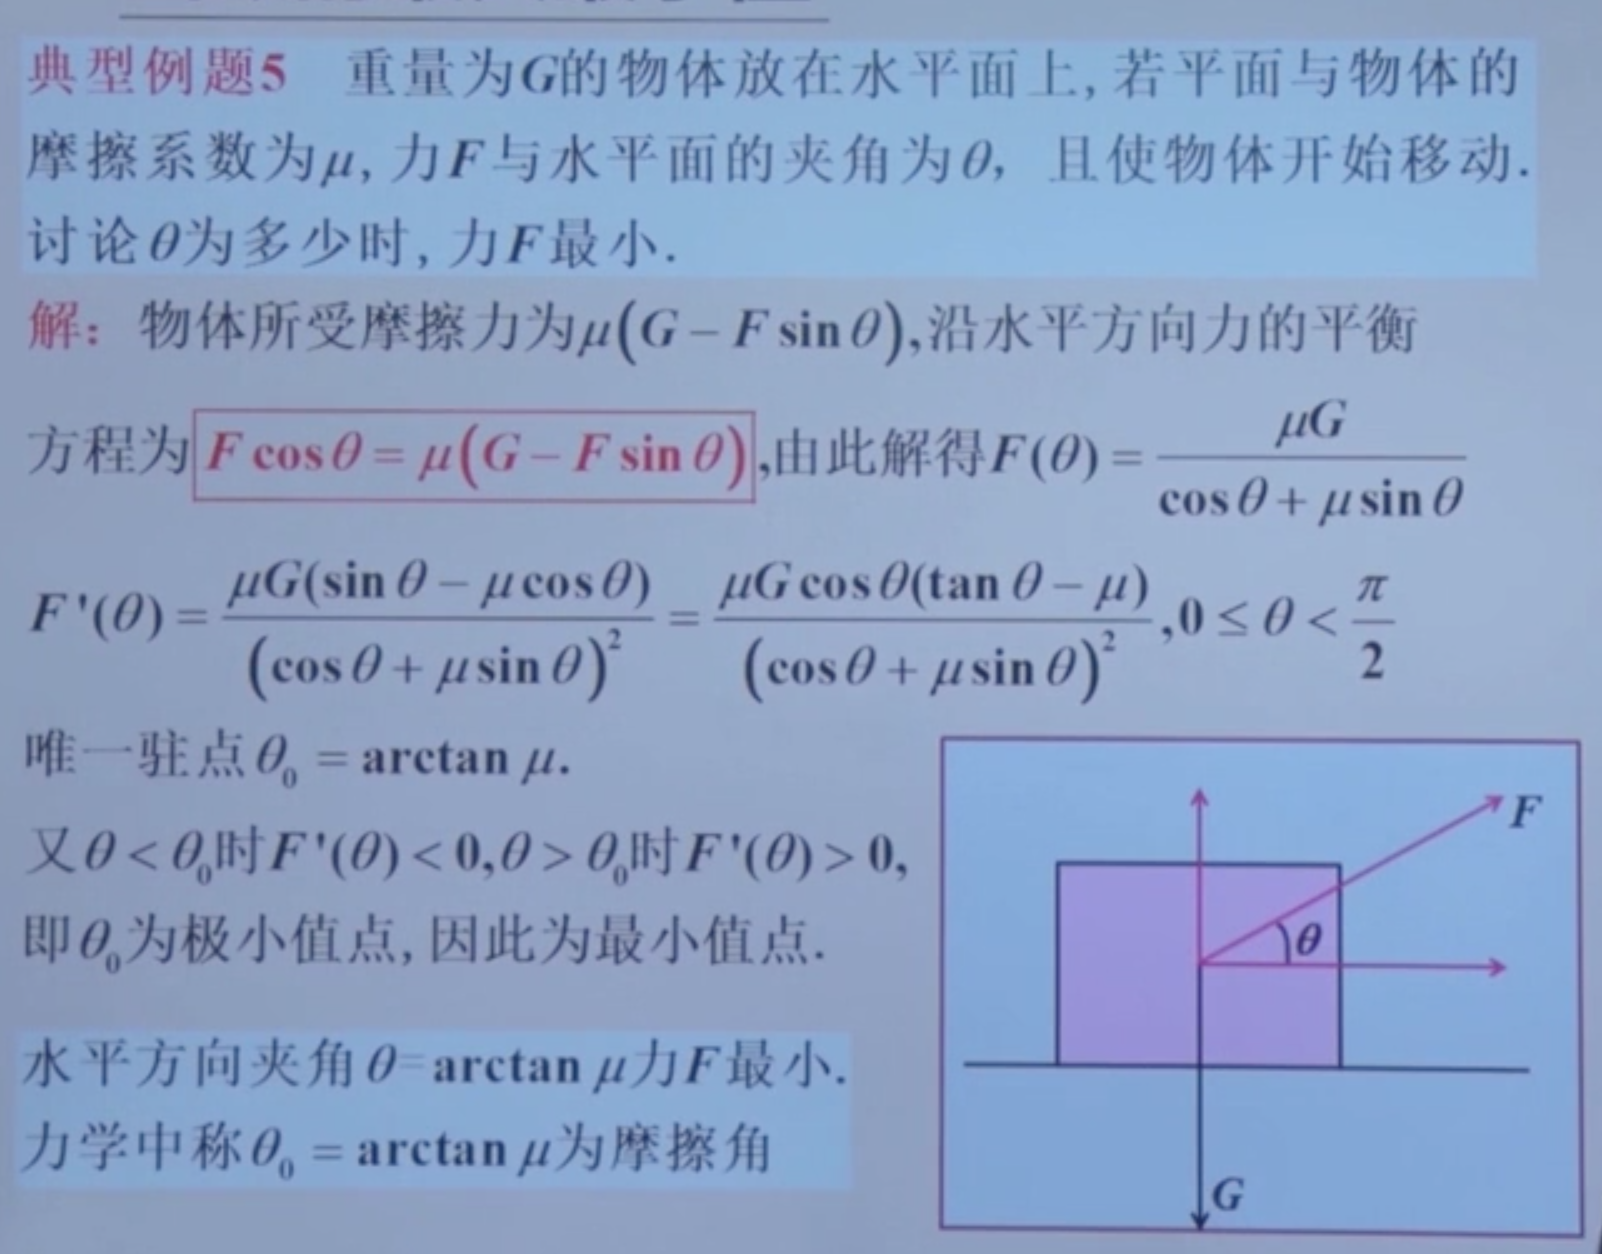 典型例题5 重量为G的物体放在水平面上,若平面与物体的
摩擦系数为μ,力F与水平面的夹角为θ, 且使物体开始移动.
讨论θ为多少时,力F最小.
解: 物体所受摩擦力为μ(G-F sinθ),沿水平方向力的平衡
方程为 F cosθ = μ(G-F sinθ) ,由此解得F(θ) = μG / (cosθ + μ sinθ)
F'(θ) = μG(sinθ - μcosθ) / (cosθ + μ sinθ)² = μG cosθ(tanθ - μ) / (cosθ + μ sinθ)² ,0 ≤ θ < π/2
唯一驻点θ₀ = arctan μ.
又θ < θ₀时F'(θ) < 0,θ > θ₀时F'(θ) > 0,
即θ₀为极小值点,因此为最小值点.
水平方向夹角θ=arctan μ力F最小.
力学中称θ₀ = arctan μ为摩擦角
F
θ
G